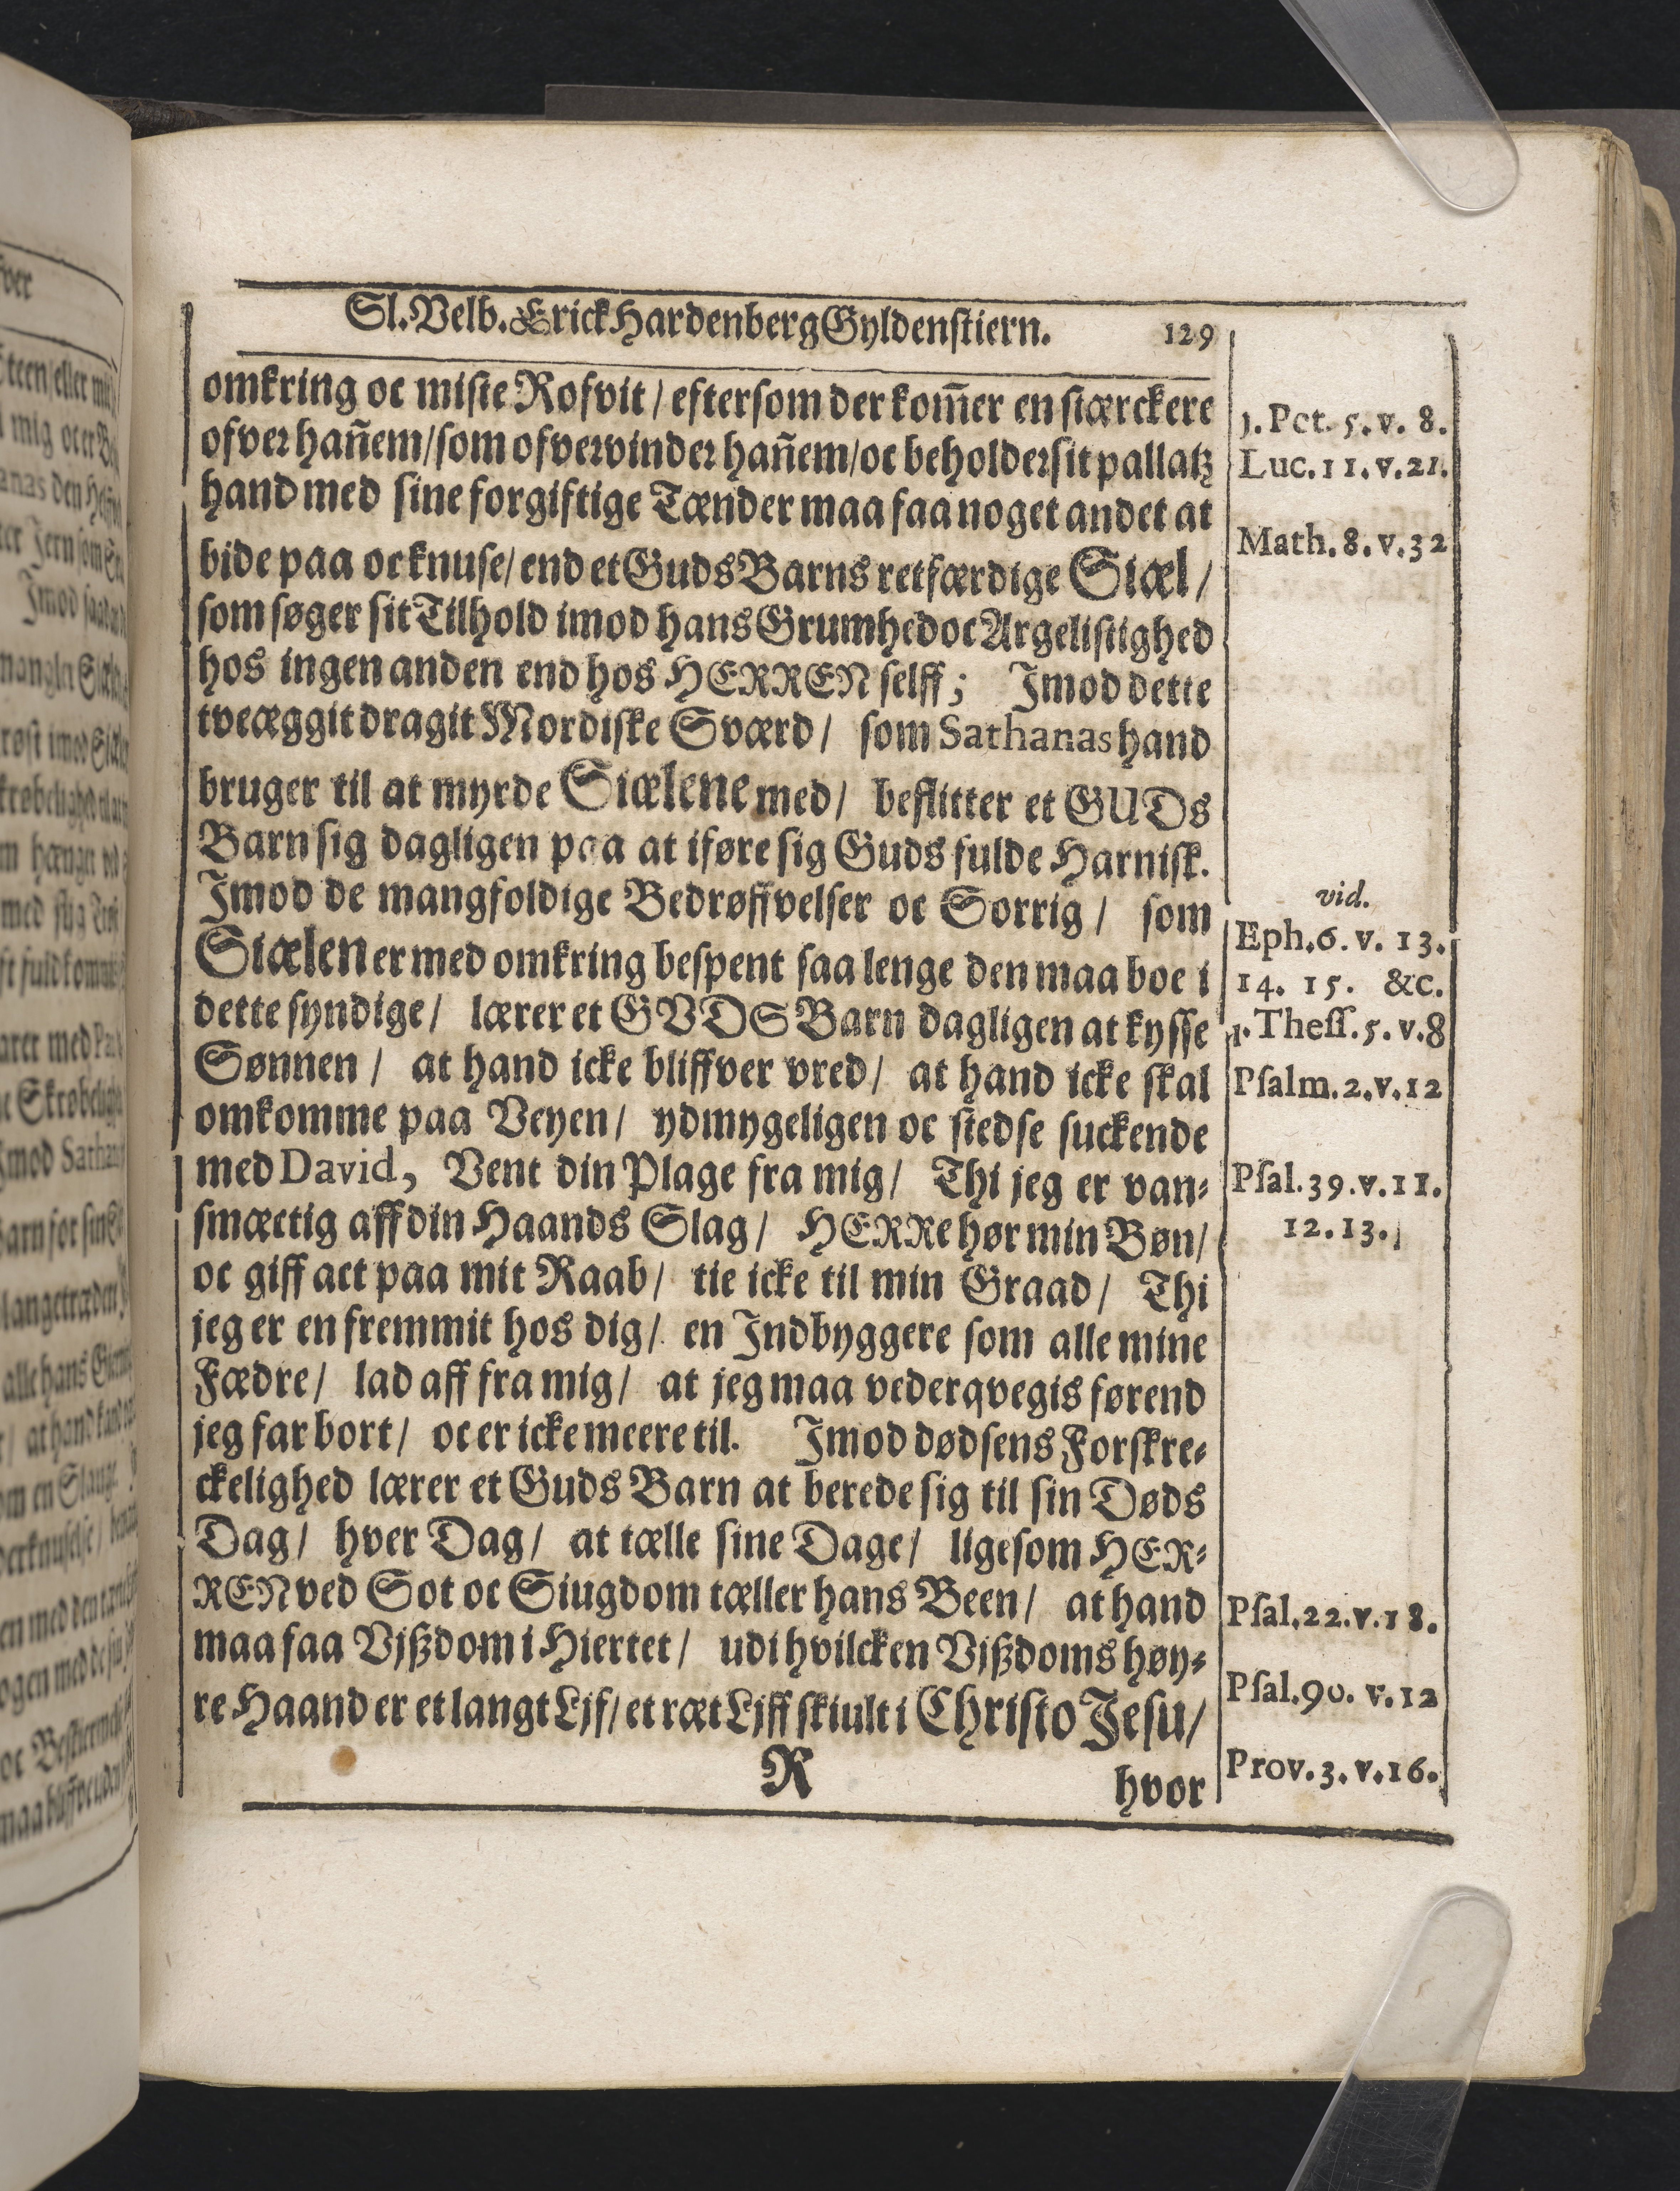 Sl. Velb. Erick Hardenberg Gyldenstiern. 129
omkring oc miste Rofvit / eftersom der kom̃er en stærckere
ofver hañem / som ofvervinder hañem / oc beholder sit pallatz
hand med sine forgiftige Tænder maa faa noget andet at
bide paa oc knuse / end et Guds Barns retfærdige Siæl /
som søger sit Tilhold imod hans Grumhed oc Argelistighed
hos ingen anden end hos HERREN selff; Imod dette
tveæggit dragit Mordiske Sværd / som Sathanas hand
bruger til at myrde Siælene med / beflitter et GUDs
Barn sig dagligen paa at iføre sig Guds fulde Harnisk.
Imod de mangfoldige Bedrøffvelser oc Sorrig / som
Siælen er med omkring bespent saa lenge den maa boe i
dette syndige / lærer et GVDS Barn dagligen at kysse
Sønnen / at hand icke bliffver vred / at hand icke skal
omkomme paa Veyen / ydmygeligen oc stedse suckende
med David, Vent din Plage fra mig / Thi jeg er van-
smæctig aff din Haands Slag / HERRe hør min Bøn /
oc giff act paa mit Raab / tie icke til min Graad / Thi
jeg er en fremmit hos dig / en Indbyggere som alle mine
Fædre / lad aff fra mig / at jeg maa vederqvegis førend
jeg far bort / oc er icke meere til. Imod dødsens Forskre-
ckelighed lærer et Guds Barn at berede sig til sin Døds
Dag / hver Dag / at tælle sine Dage / ligesom HER-
REN ved Sot oc Siugdom tæller hans Been / at hand
maa faa Vjßdom i Hiertet / udi hvilcken Vjßdoms høy-
re Haand er et langt Ljf / et ræt Ljff skiult i Christo Jesu /
R hvor
1. Pet. 5. v. 8.
Luc. 11. v. 21.
Math. 8. v. 32
vid.
Eph. 6. v. 13.
14. 15. &c.
1. Thess. 5. v. 8
Psalm. 2. v. 12
Psal. 39. v. 11.
12. 13.
Psal. 22. v. 18.
Psal. 90. v. 12
Prov. 3. v. 16.